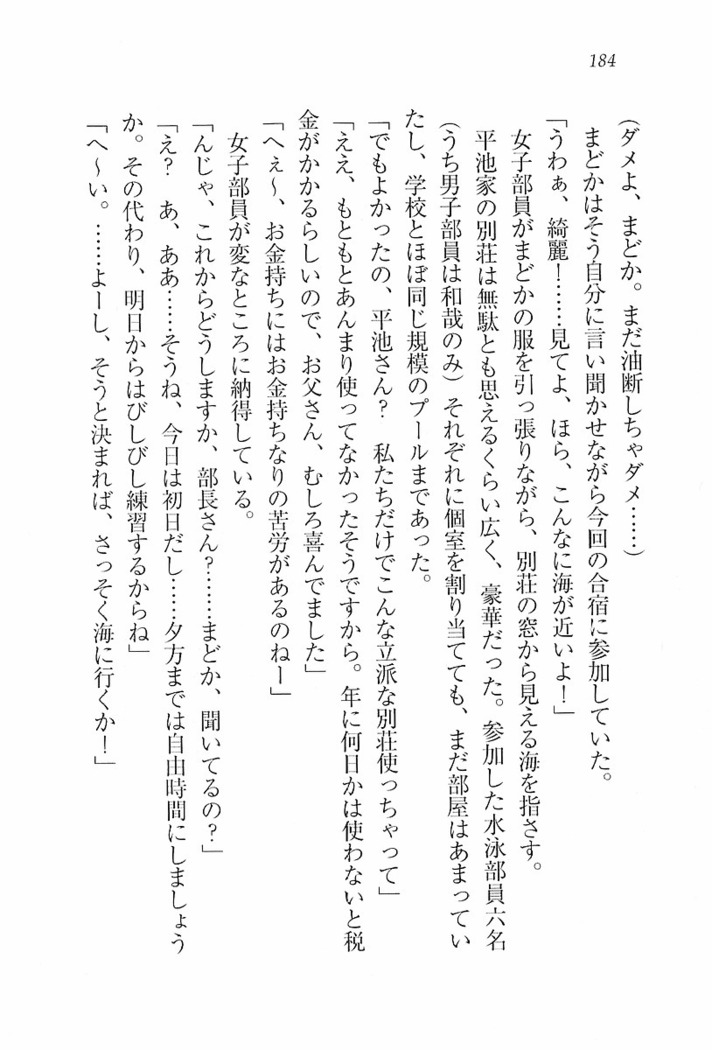 184
(ダメよ、まどか。まだ油断しちゃダメ……)
まどかはそう自分に言い聞かせながら今回の合宿に参加していた。
「うわぁ、綺麗！……見てよ、ほら、こんなに海が近いよ！」
女子部員がまどかの服を引っ張りながら、別荘の窓から見える海を指さす。
平池家の別荘は無駄とも思えるくらい広く、豪華だった。参加した水泳部員六名
(うち男子部員は和哉のみ)それぞれに個室を割り当てても、まだ部屋はあまってい
たし、学校とほぼ同じ規模のプールまであった。
「でもよかったの、平池さん？　私たちだけでこんな立派な別荘使っちゃって」
「ええ、もともとあんまり使ってなかったそうですから。年に何日かは使わないと税
金がかかるらしいので、お父さん、むしろ喜んでました」
「へぇ〜、お金持ちにはお金持ちなりの苦労があるのねー」
女子部員が変なところに納得している。
「んじゃ、これからどうしますか、部長さん？……まどか、聞いてるの？」
「え？　あ、ああ……そうね、今日は初日だし……夕方までは自由時間にしましょう
か。その代わり、明日からはびしびし練習するからね」
「へ〜い。……よーし、そうと決まれば、さっそく海に行くか！」